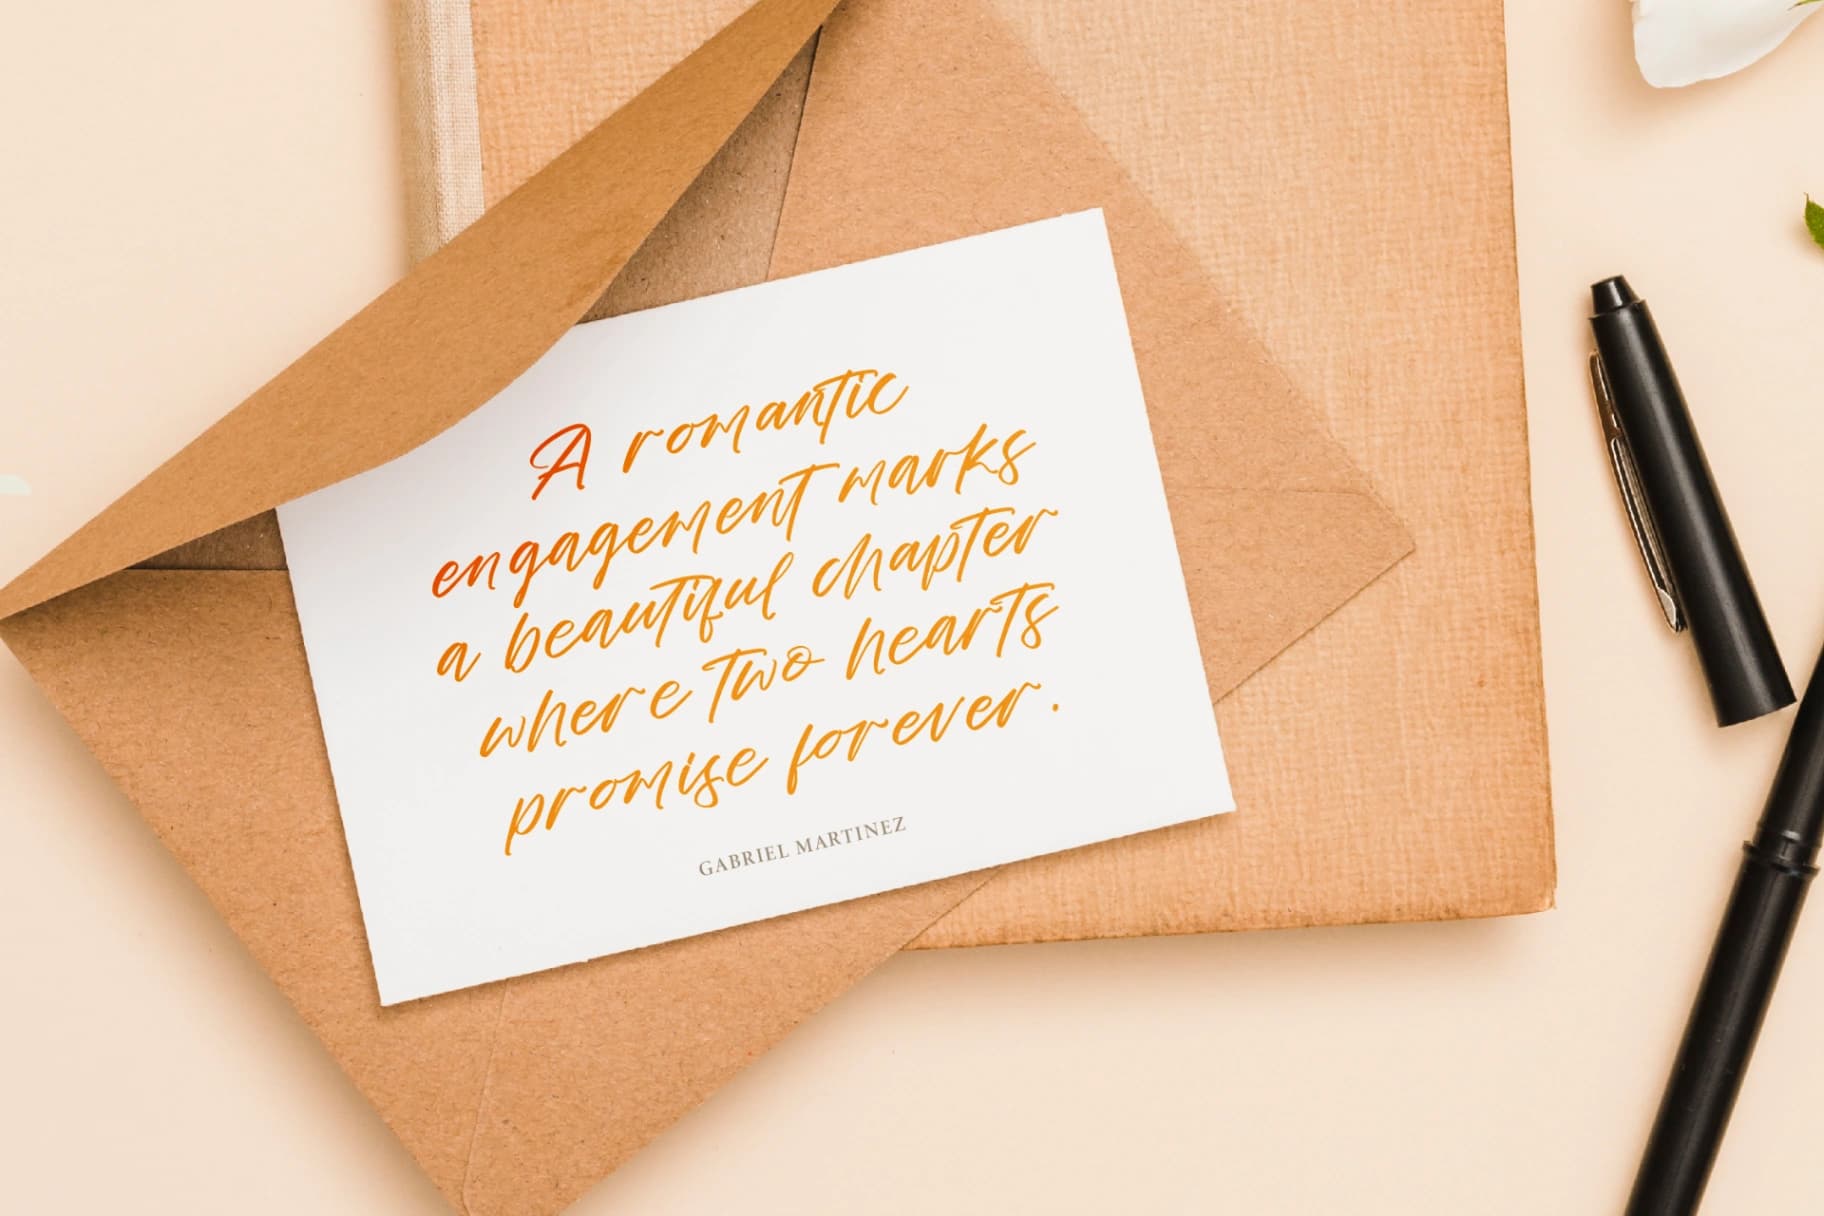 A romantic
engagement marks
a beautiful chapter
where two hearts
promise forever.
GABRIEL MARTINEZ